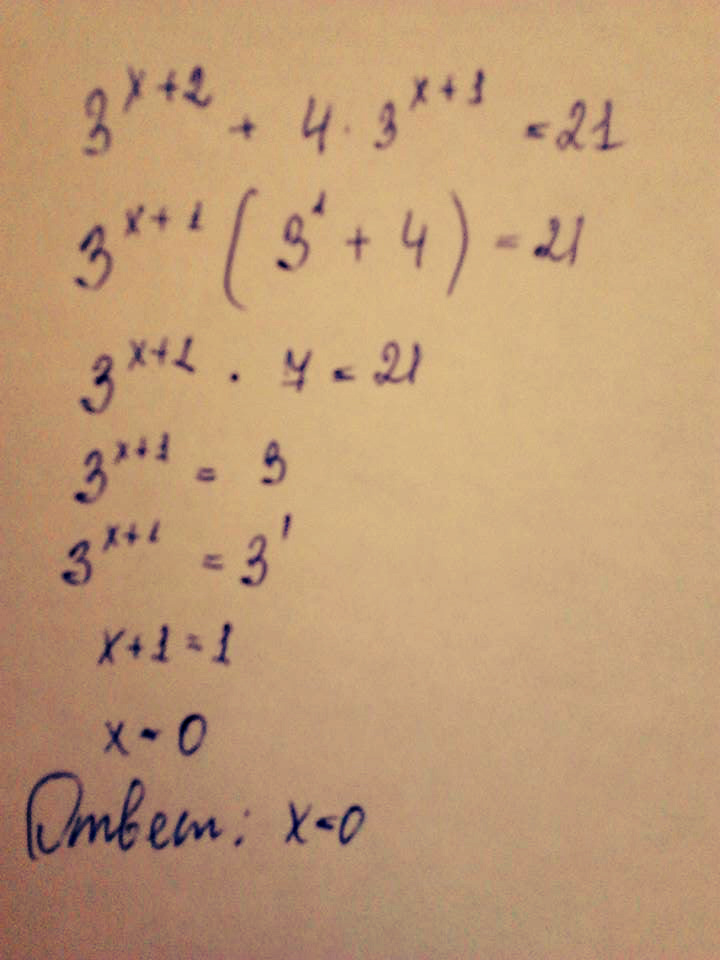 3^{x+2} + 4 · 3^{x+1} = 21
3^{x+1} (3^1 + 4) = 21
3^{x+1} · 7 = 21
3^{x+1} = 3
3^{x+1} = 3^1
x+1=1
x=0
Ответ: x=0